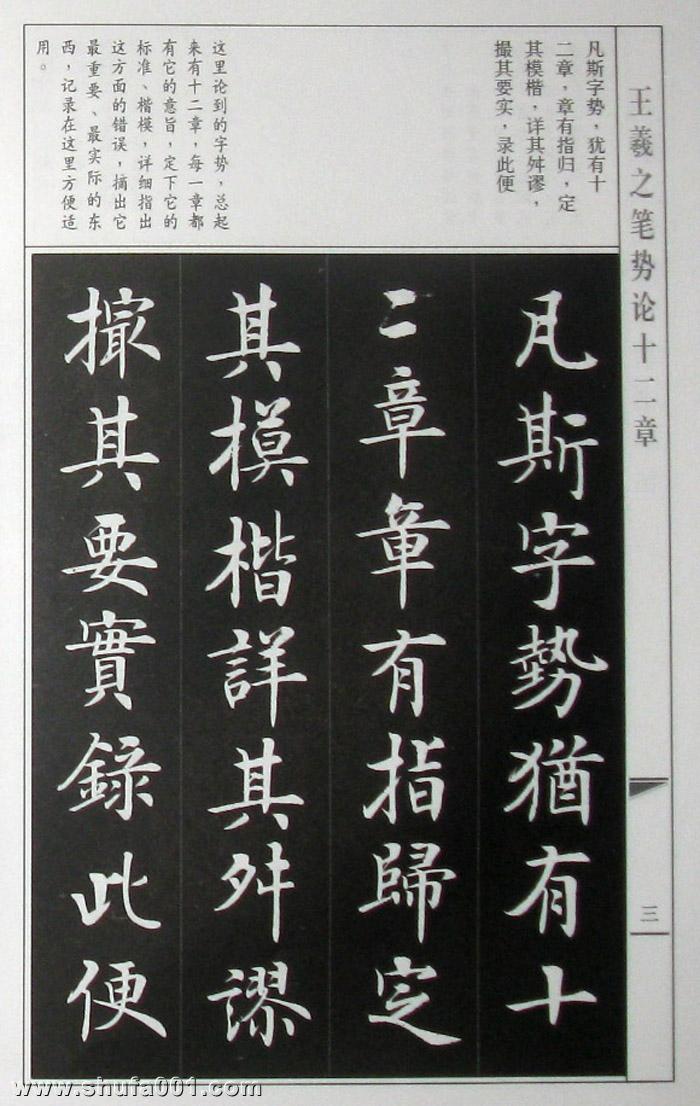 王羲之笔势论十二章
三
凡斯字势，犹有十
二章，章有指归，定
其模楷，详其舛谬，
撮其要实，录此便
这里论到的字势，总起
来有十二章，每一章都
有它的意旨，定下它的
标准、楷模，详细指出
这方面的错误，摘出它
最重要、最实际的东
西，记录在这里方便适
用。
凡斯字勢猶有十
二章章有指歸定
其模楷詳其舛謬
撮其要實錄此便
www.shufa001.com